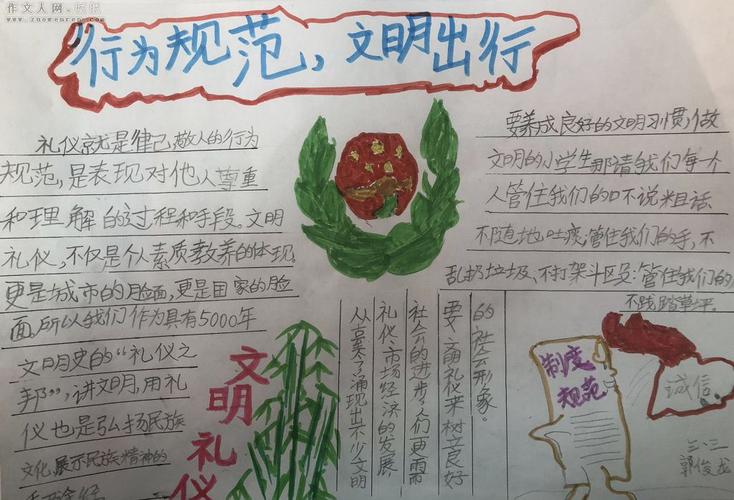 作文人网·板报
www.zuowenren.com
行为规范,文明出行
礼仪就是律己敬人的行为
规范,是表现对他人尊重
和理解的过程和手段。文明
礼仪,不仅是个人素质教养的体现,
更是城市的脸面,更是国家的脸
面。所以我们作为具有5000年
文明史的“礼仪之
邦”,讲文明,用礼
仪也是弘扬民族
文化,展示民族精神的
文明礼仪
从古至今涌现出不少文明
礼仪,市场经济的发展
社会的进步,人们更需
要文明礼仪来树立良好
的社会形象。
要养成良好的文明习惯,做
文明的小学生那请我们每一个
人管住我们的口不说粗话
不随地吐痰;管住我们的手,不
乱扔垃圾、不打架斗殴;管住我们的
不践踏草坪。
制度
规范
诚信
三.二
郭俊龙